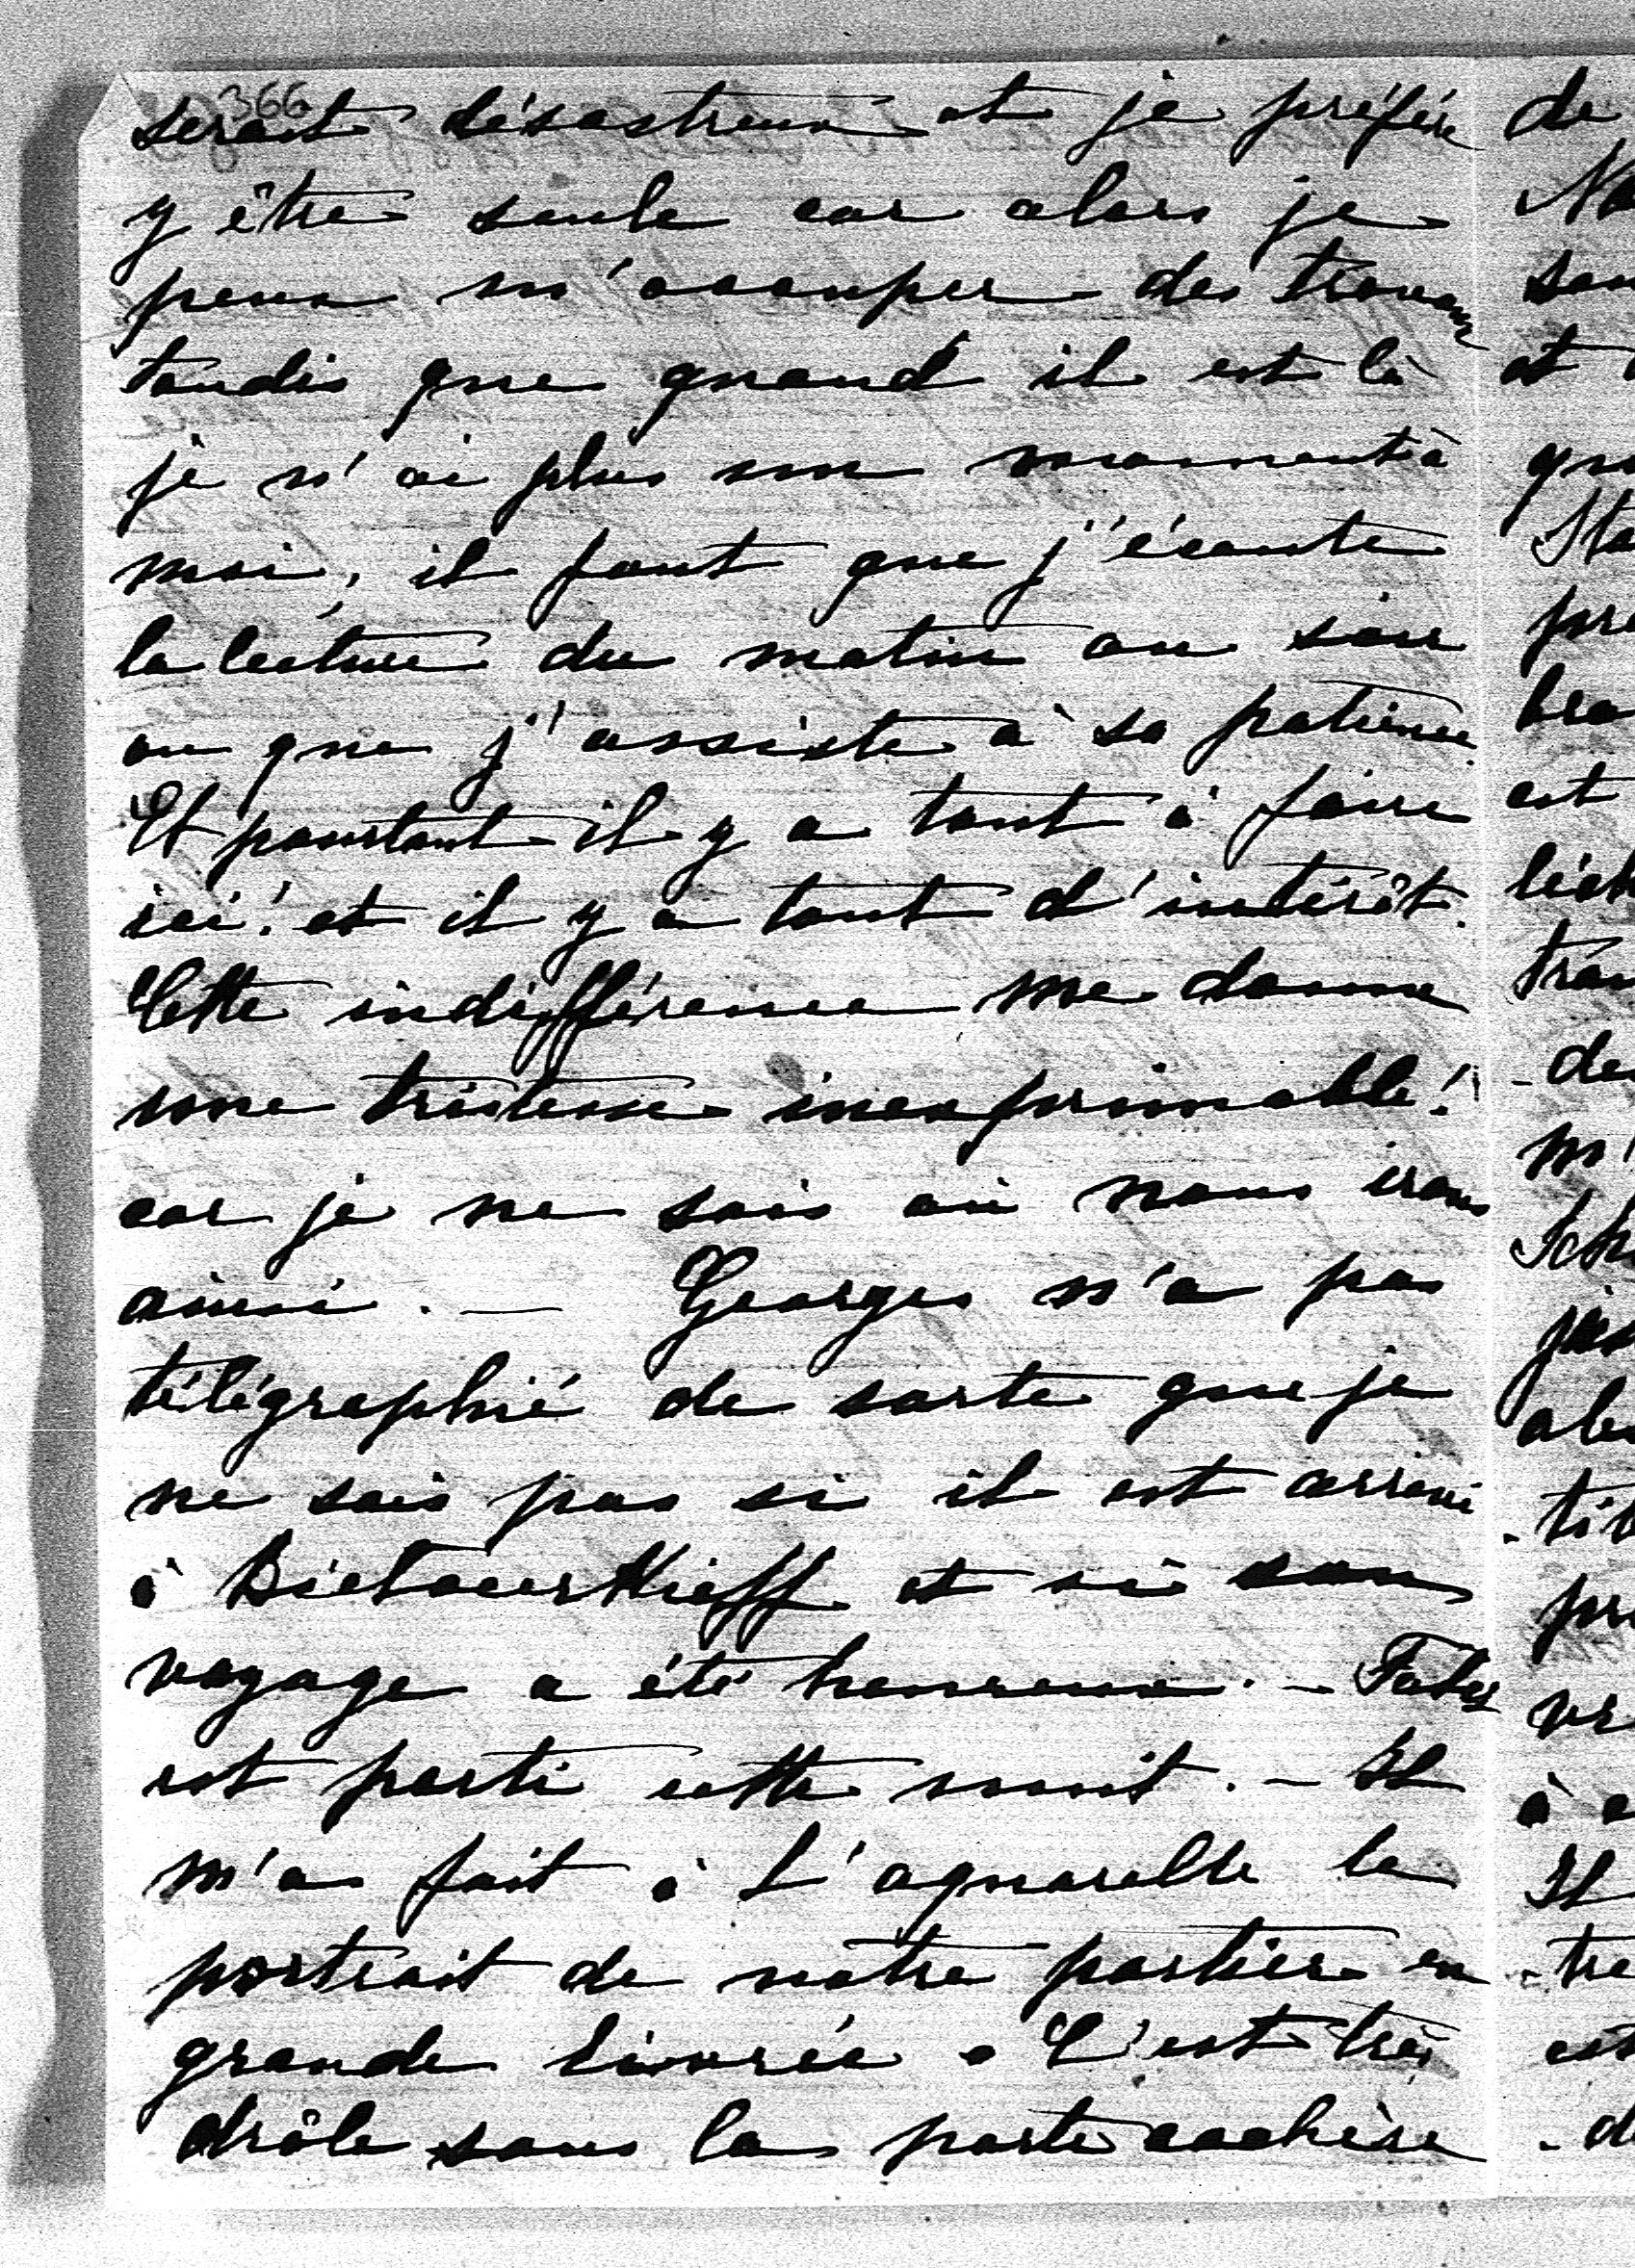 366
serait désastreux et je préfère
y être seule car alors je
peux m'occuper des travaux
tandis que quand il est là
je n'ai plus un moment à
moi, il faut que j'écoute
la lecture du matin au soir
ou que j'assiste à sa patience.
Et pourtant il y a tant à faire
ici! et il y a tant d'intérêt.
Cette indifférence me donne
une tristesse inexprimable!
car je ne sais où nous irons
ainsi. — Georges n'a pas
télégraphié de sorte que je
ne sais pas si il est arrivé
à et si son
voyage a été heureux. —
est parti cette nuit. — Il
m'a fait à l'aquarelle le
portrait de notre portier en
grande livrée. C'est très
drôle sous la porte cochère
de
et
est
à
Il